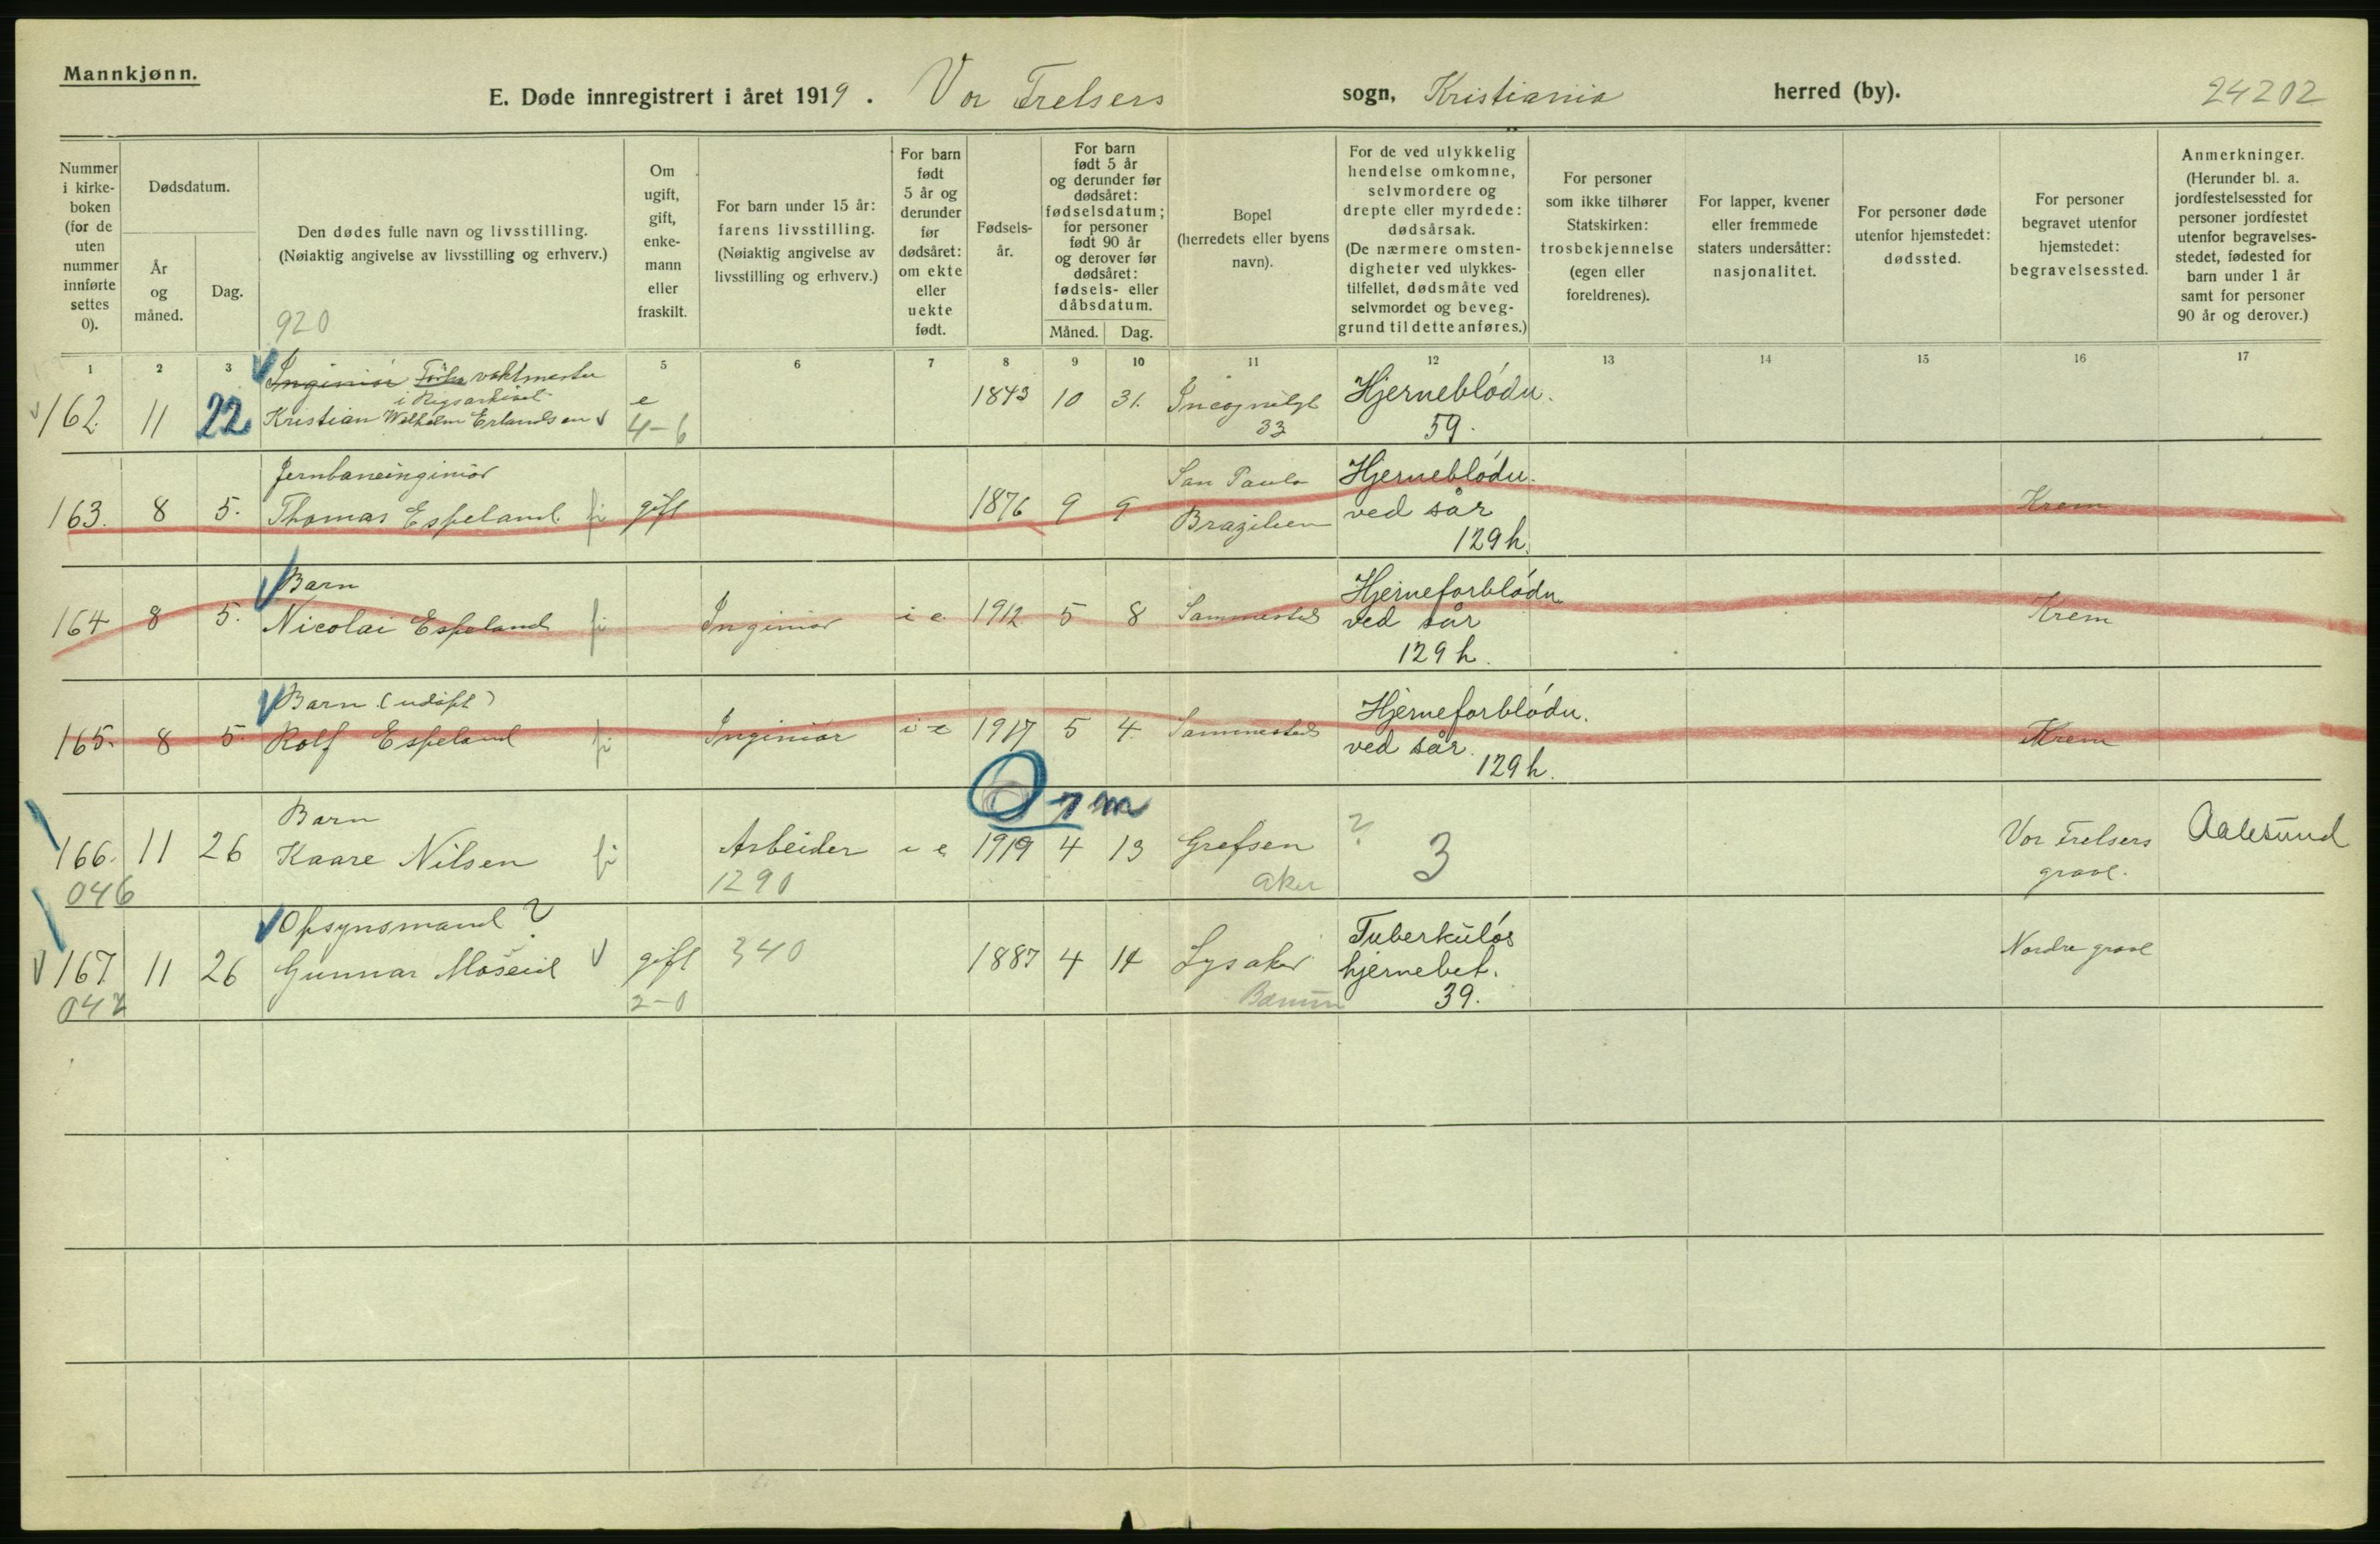 Mannkjønn.
E. Døde innregistrert i året 1919. Vor Frelsers sogn, Kristiania herred (by).
24202
Nummer i kirkeboken (for de uten nummer innførte settes 0).
Dødsdatum.
År og måned.
Dag.
Den dødes fulle navn og livsstilling.
(Nøiaktig angivelse av livsstilling og erhverv.)
920
Om ugift, gift, enkemann eller fraskilt.
For barn under 15 år: farens livsstilling.
(Nøiaktig angivelse av livsstilling og erhverv.)
For barn født 5 år og derunder før dødsåret: om ekte eller uekte født.
Fødselsår.
For barn født 5 år og derunder før dødsåret: fødselsdatum; for personer født 90 år og derover før dødsåret: fødsels- eller dåbsdatum.
Måned.
Dag.
Bopel
(herredets eller byens navn).
For de ved ulykkelig hendelse omkomne, selvmordere og drepte eller myrdede: dødsårsak.
(De nærmere omstendigheter ved ulykkestilfellet, dødsmåte ved selvmordet og beveggrund til dette anføres.)
For personer som ikke tilhører Statskirken: trosbekjennelse
(egen eller foreldrenes).
For lapper, kvener eller fremmede staters undersåtter: nasjonalitet.
For personer døde utenfor hjemstedet: dødssted.
For personer begravet utenfor hjemstedet: begravelsessted.
Anmerkninger.
(Herunder bl. a. jordfestelsessted for personer jordfestet utenfor begravelsesstedet, fødested for barn under 1 år samt for personer 90 år og derover.)
1 2 3 5 6 7 8 9 10 11 12 13 14 15 16 17
Inginiör vaktmester
i Rigsarkivet
162. 11 22 Kristian Wilhelm Erlandsen e 1843 10 31. Incognitgt Hjerneblödn.
4-6 33 59.
Jernbaneinginiör San Paulo Hjerneblödn.
163. 8 5. Thomas Espeland fi gift 1876 9 9 Brazilien ved sår Krem
129 h.
Barn Hjerneforblödn
164 8 5. Nicolai Espeland fi Inginiör i e 1912 5 8 Sammested ved sår Krem
129 h.
Barn (udöpt) Hjerneforblödn.
165. 8 5. Rolf Espeland fi Inginiör i e 1917 5 4. Sammested ved sår. Krem
129 h.
0 7 m
Barn ? Vor Frelsers Aalesund
166. 11 26 Kaare Nilsen fi Arbeider i e 1919 4 13 Grefsen 3 gravl.
046 1290 Aker
Opsynsmand ? Tuberkulös Nordre gravl
167. 11 26 Gunnar Moseid gift 340 1887 4 14 Lysaker hjernebet.
047 2-0 Bærum 39.